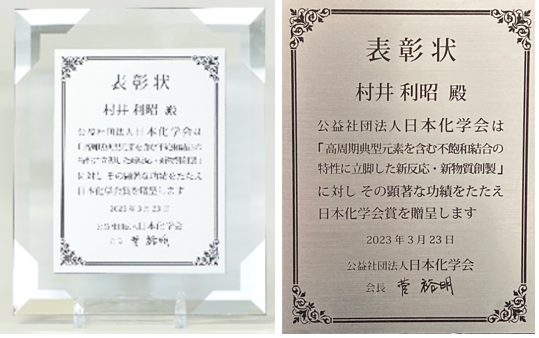 表彰状
村井利昭 殿
公益社団法人日本化学会は
「高周期典型元素を含む不飽和結合の
特性に立脚した新反応・新物質創製」
に対し その顕著な功績をたたえ
日本化学会賞を贈呈します
2023年3月23日
公益社団法人日本化学会
会長 菅 裕明
表彰状
村井利昭 殿
公益社団法人日本化学会は
「高周期典型元素を含む不飽和結合の
特性に立脚した新反応・新物質創製」
に対し その顕著な功績をたたえ
日本化学会賞を贈呈します
2023年3月23日
公益社団法人日本化学会
会長 菅 裕明